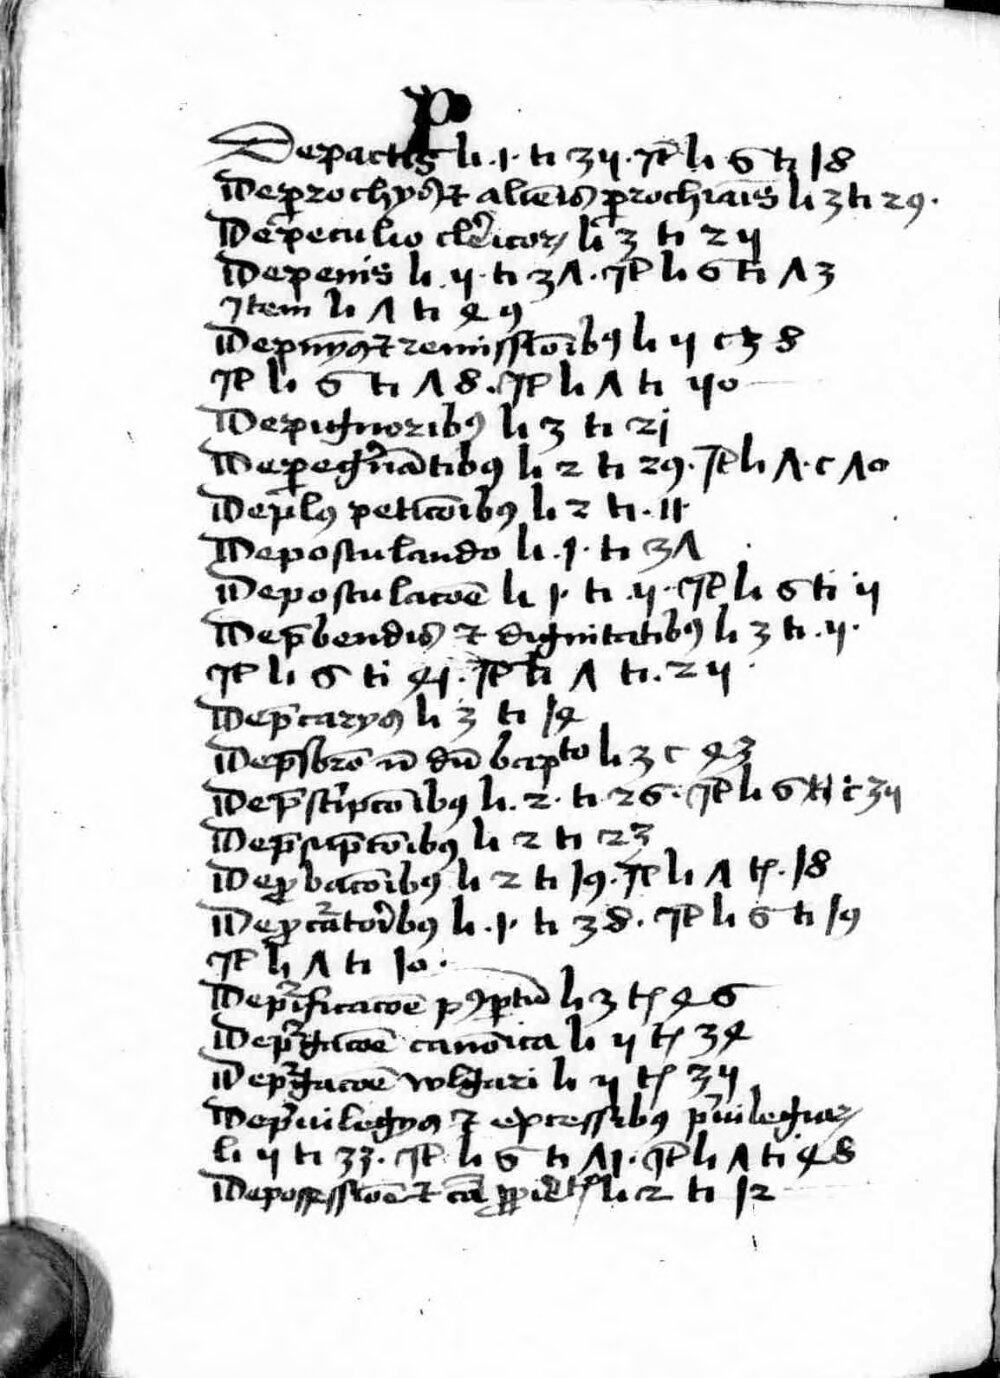 P
De pactis li .1. ti 34. Jt li 6 ti 18
De prochijs et alienis prochianis li 3 ti 29.
De peculio clericor li 3 ti 24
De penis li .4. ti 3Λ. Jt li 6 ti Λ3
Jtem li Λ ti 49
De pnijs et remissionibus li 4 c 38
Jt li 6 ti Λ8. Jt li Λ ti 40
De pignoribus li 3 ti 21
De peregrinantibus li 2 ti 29. Jt li Λ. c Λ0
De plus peticoibus li 2 ti. 11
De postulando li .1. ti 3Λ
De postulacoe li 1. ti .4. Jt li 6 ti 4
De pbendis et dignitatibus li 3 ti .4.
Jt li 6 ti 41. Jt li Λ ti. 24
De pcarijs li 3 ti 14
De psbro no bapto li 3 c 43
De pscripcoibus li .2. ti .26. Jt li 6 ti c 34
De psupcoibus li 2 ti 23
De pbacoibus li 2 ti 19. Jt li Λ ti. 18
De pcuratoribus li .1. ti 38. Jt li 6 ti 19
Jt li Λ ti 10.
De purificacoe post ptu li 3 ti 46
De purgacoe canonica li 4 ti 34
De purgacoe wlgari li 4 ti 34
De priuilegijs et excessibus priuilegiar
li 4 ti 33. Jt li 6 ti Λ1. Jt li Λ ti 48
De possessioe et ca li 2 ti 12